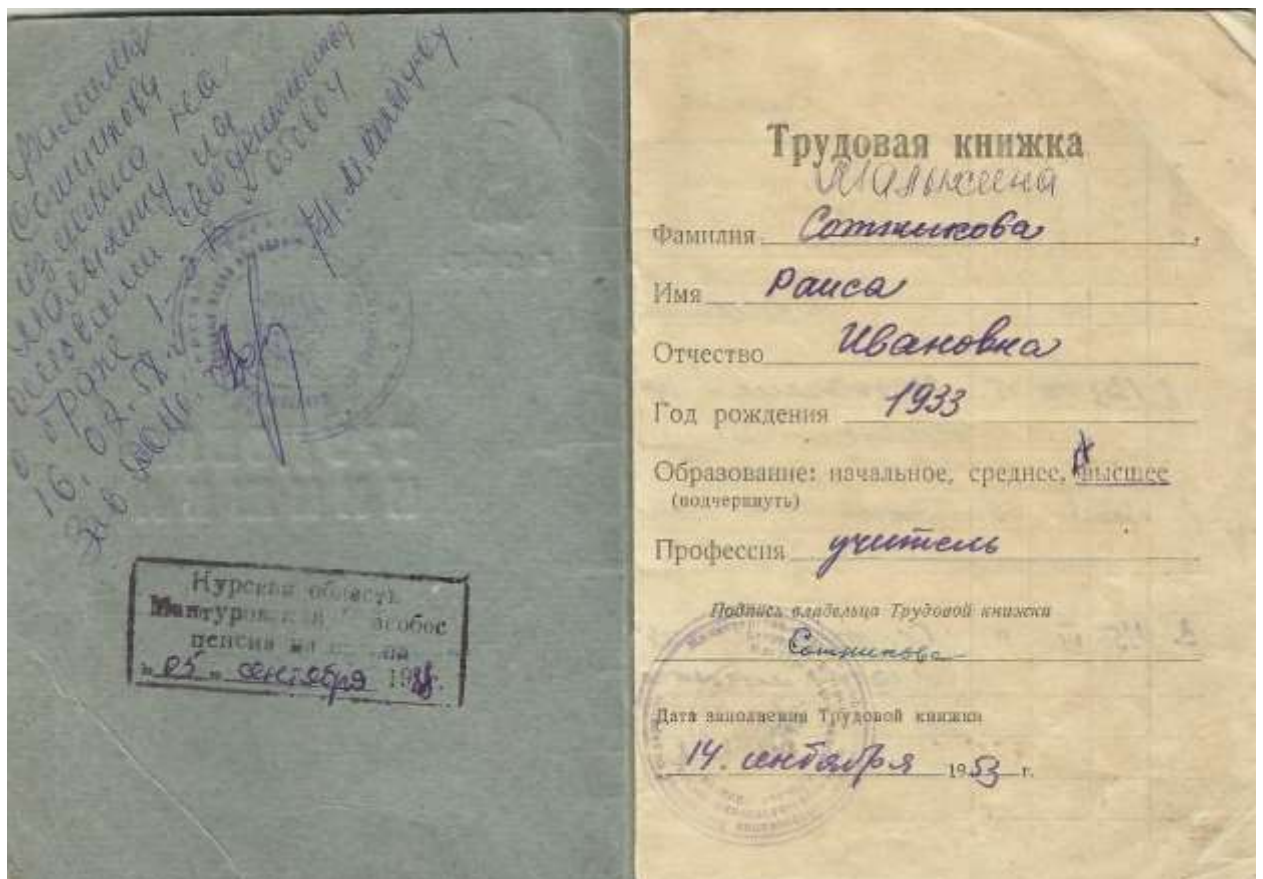 Фамилия
Сотникову
изменило на
Малыхину на
основании свидетельства
о браке
16. 02. 58.
Зав
Курская область
пенсия
" 05 " сентября 1988.
Трудовая книжка
Малыхина
Фамилия Сотникова,
Имя Раиса
Отчество Ивановна
Год рождения 1933
Образование: начальное, среднее, высшее
(подчеркнуть)
Профессия учитель
Подпись владельца Трудовой книжки
Сотникова
Дата заполнения Трудовой книжки
14. сентября 1953 г.